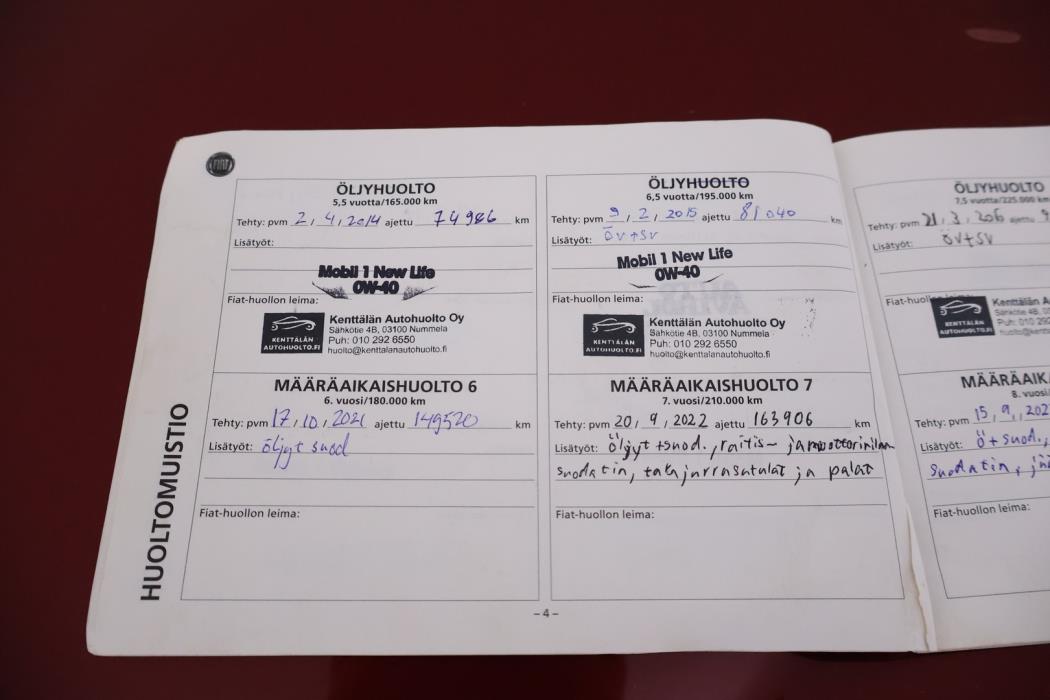 FIAT
ÖLJYHUOLTO
5,5 vuotta/165.000 km
Tehty: pvm 2 / 4 / 2014 ajettu 74986 km
Lisätyöt:
Mobil 1 New Life
0W-40
Fiat-huollon leima:
KENTTÄLÄN
AUTOHUOLTO.FI
Kenttälän Autohuolto Oy
Sähkötie 4B, 03100 Nummela
Puh: 010 292 6550
huolto@kenttalanautohuolto.fi
ÖLJYHUOLTO
6,5 vuotta/195.000 km
Tehty: pvm 9 / 2 / 2015 ajettu 81040 km
Lisätyöt: öv+sv
Mobil 1 New Life
0W-40
Fiat-huollon leima:
KENTTÄLÄN
AUTOHUOLTO.FI
Kenttälän Autohuolto Oy
Sähkötie 4B, 03100 Nummela
Puh: 010 292 6550
huolto@kenttalanautohuolto.fi
MÄÄRÄAIKAISHUOLTO 6
6. vuosi/180.000 km
Tehty: pvm 17 / 10 / 2021 ajettu 149520 km
Lisätyöt: öljyt suod
Fiat-huollon leima:
MÄÄRÄAIKAISHUOLTO 7
7. vuosi/210.000 km
Tehty: pvm 20 / 9 / 2022 ajettu 163906 km
Lisätyöt: öljyt +suod., raitis- ja moottorinilman
suodatin, takajarrusatulat ja palat
Fiat-huollon leima:
HUOLTOMUISTIO
– 4 –
ÖLJYHUOLTO
7,5 vuotta/225.000 km
Tehty: pvm 21 / 3 / 206 ajettu 9
Lisätyöt: öv+sv
Fiat-huollon
KENTTÄLÄN
AUTOHUOLTO.FI
Kenttälän A
Sähkötie 4B, 03
Puh: 010 29
huolto@kentt
MÄÄRÄAIK
8. vuosi
Tehty: pvm 15 / 9 / 202
Lisätyöt: ö + suod.,
suodatin,
Fiat-huollon leima: